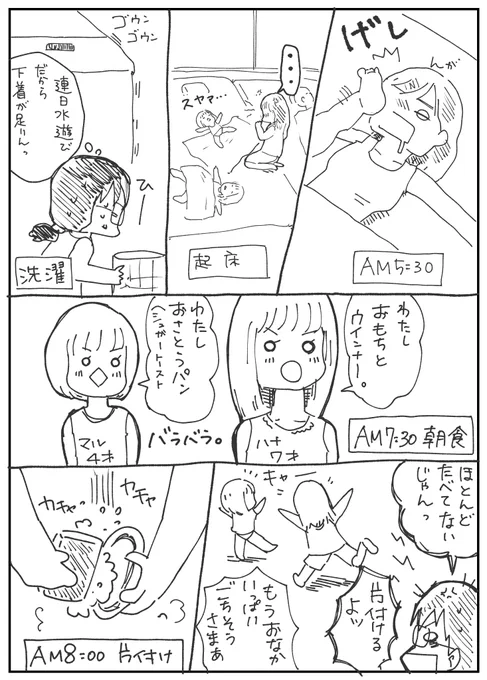 げしっ
んが
AM5:30
スヤマ…
起床
ゴウン
ゴウン
連日水遊び
だから
下着が足りんっ
ひー
洗濯
わたし
おもちと
ウインナー。
AM7:30 朝食
ハナ
7才
わたし
おさとうパン
(シュガートースト
バラバラ。
マル
4才
ほとんど
たべてない
じゃんっ
片付ける
よッ
キャー
もうおなか
いっぱい
ごちそう
さまぁ
カチャ
カチャ
AM8:00 片付け